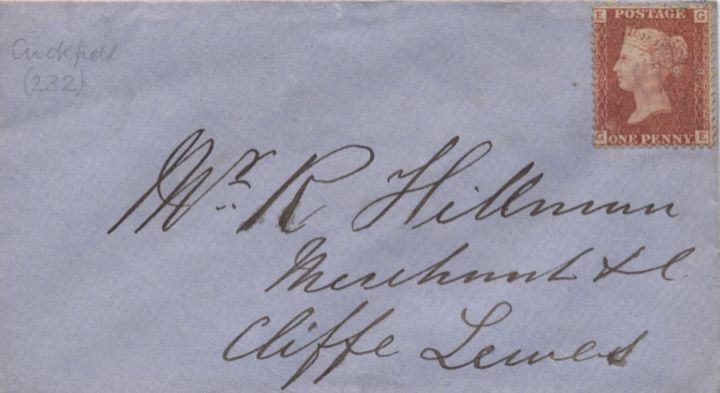 Cuckfield
(232)
E POSTAGE G
G ONE PENNY E
Mr. R Hillman
Merchant & c
Cliffe Lewes